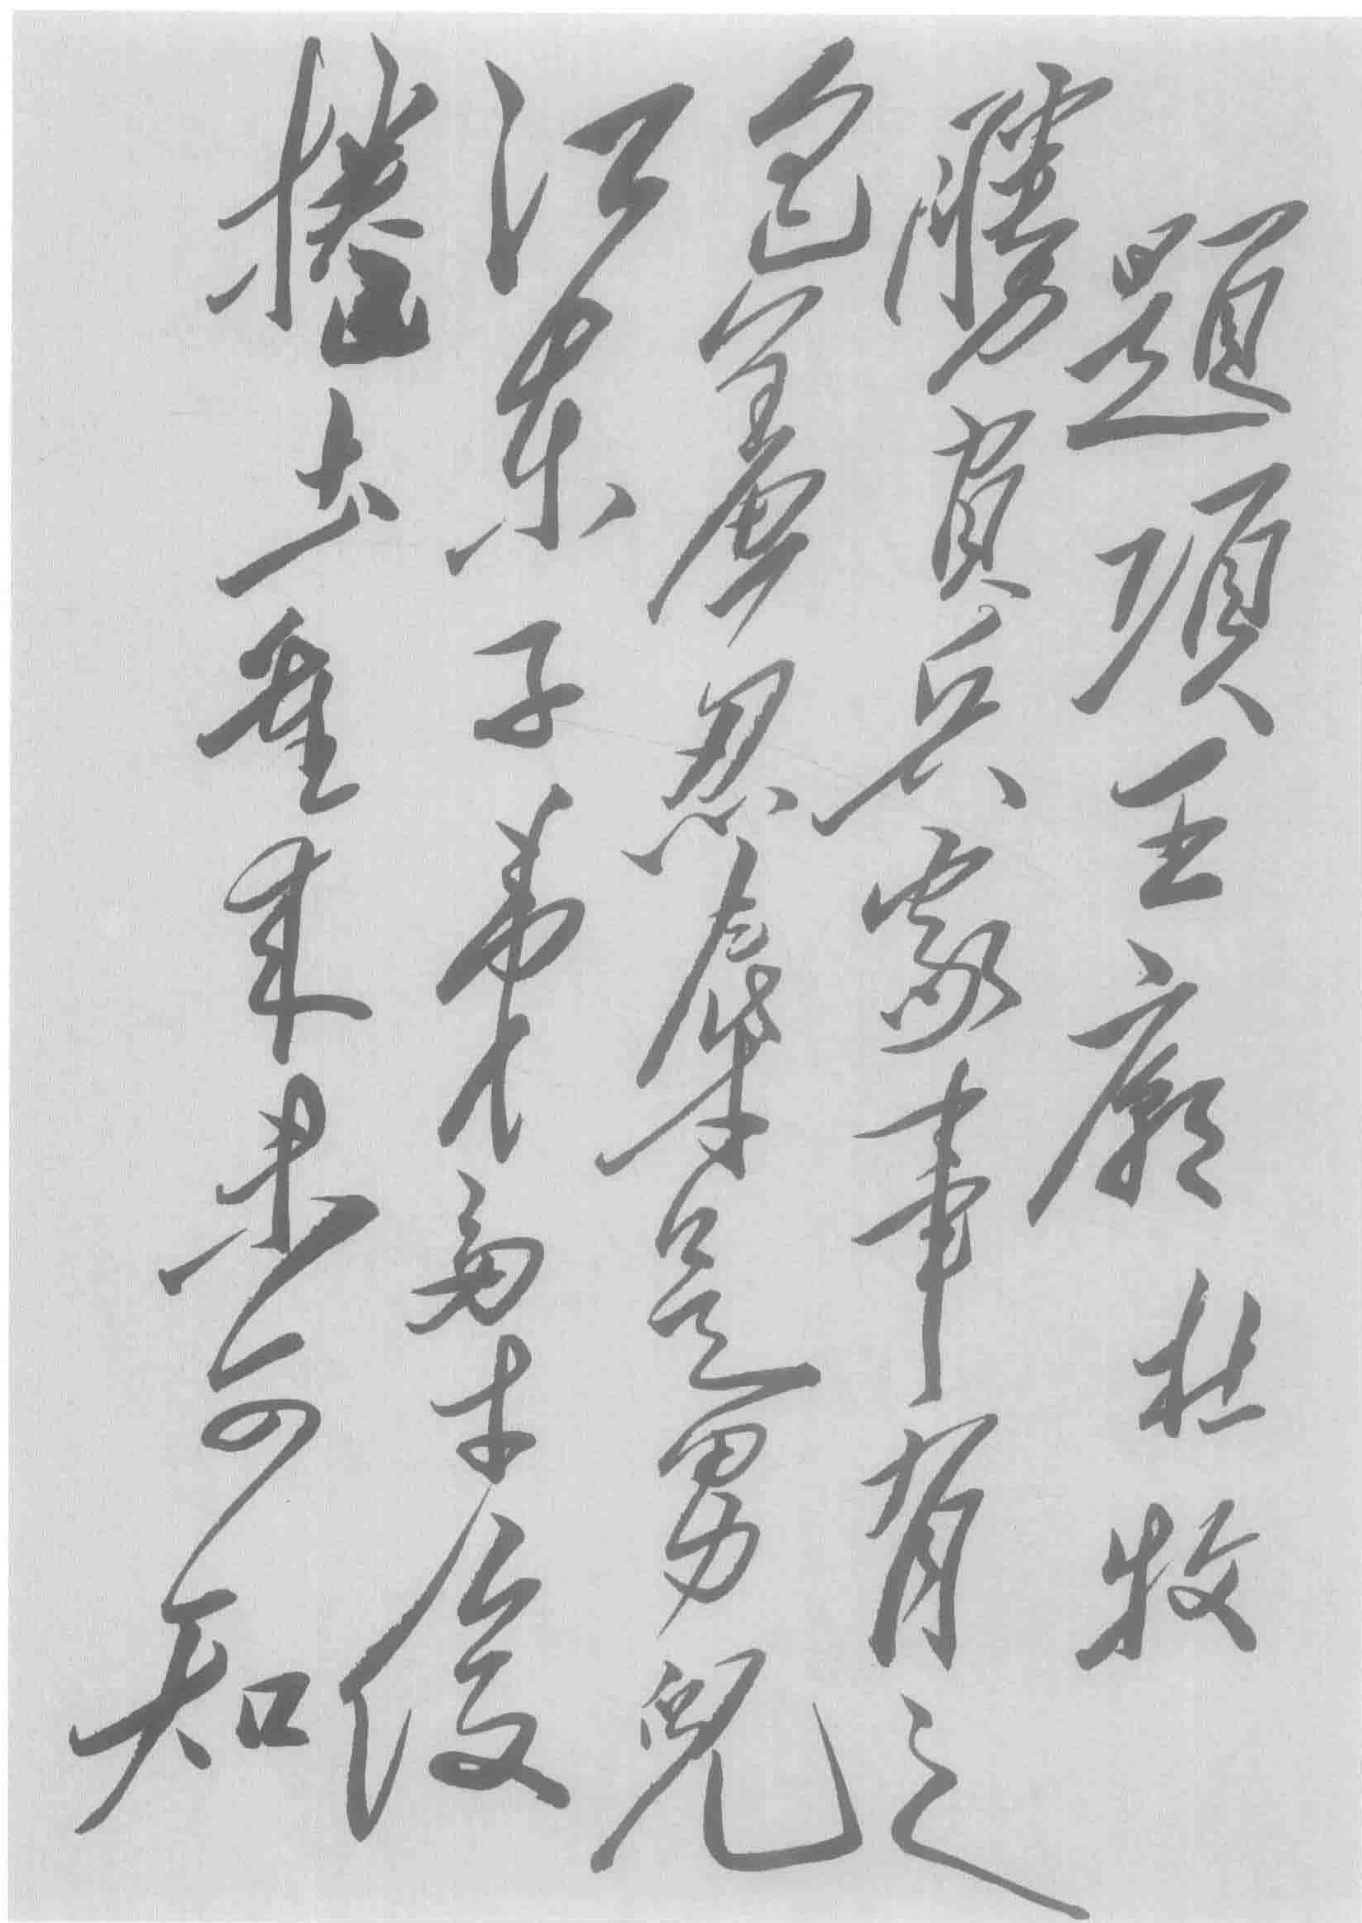 題項王廟 杜牧
勝負兵家事有之
包羞忍辱是男兒
江東子弟多才俊
捲土重來未可知